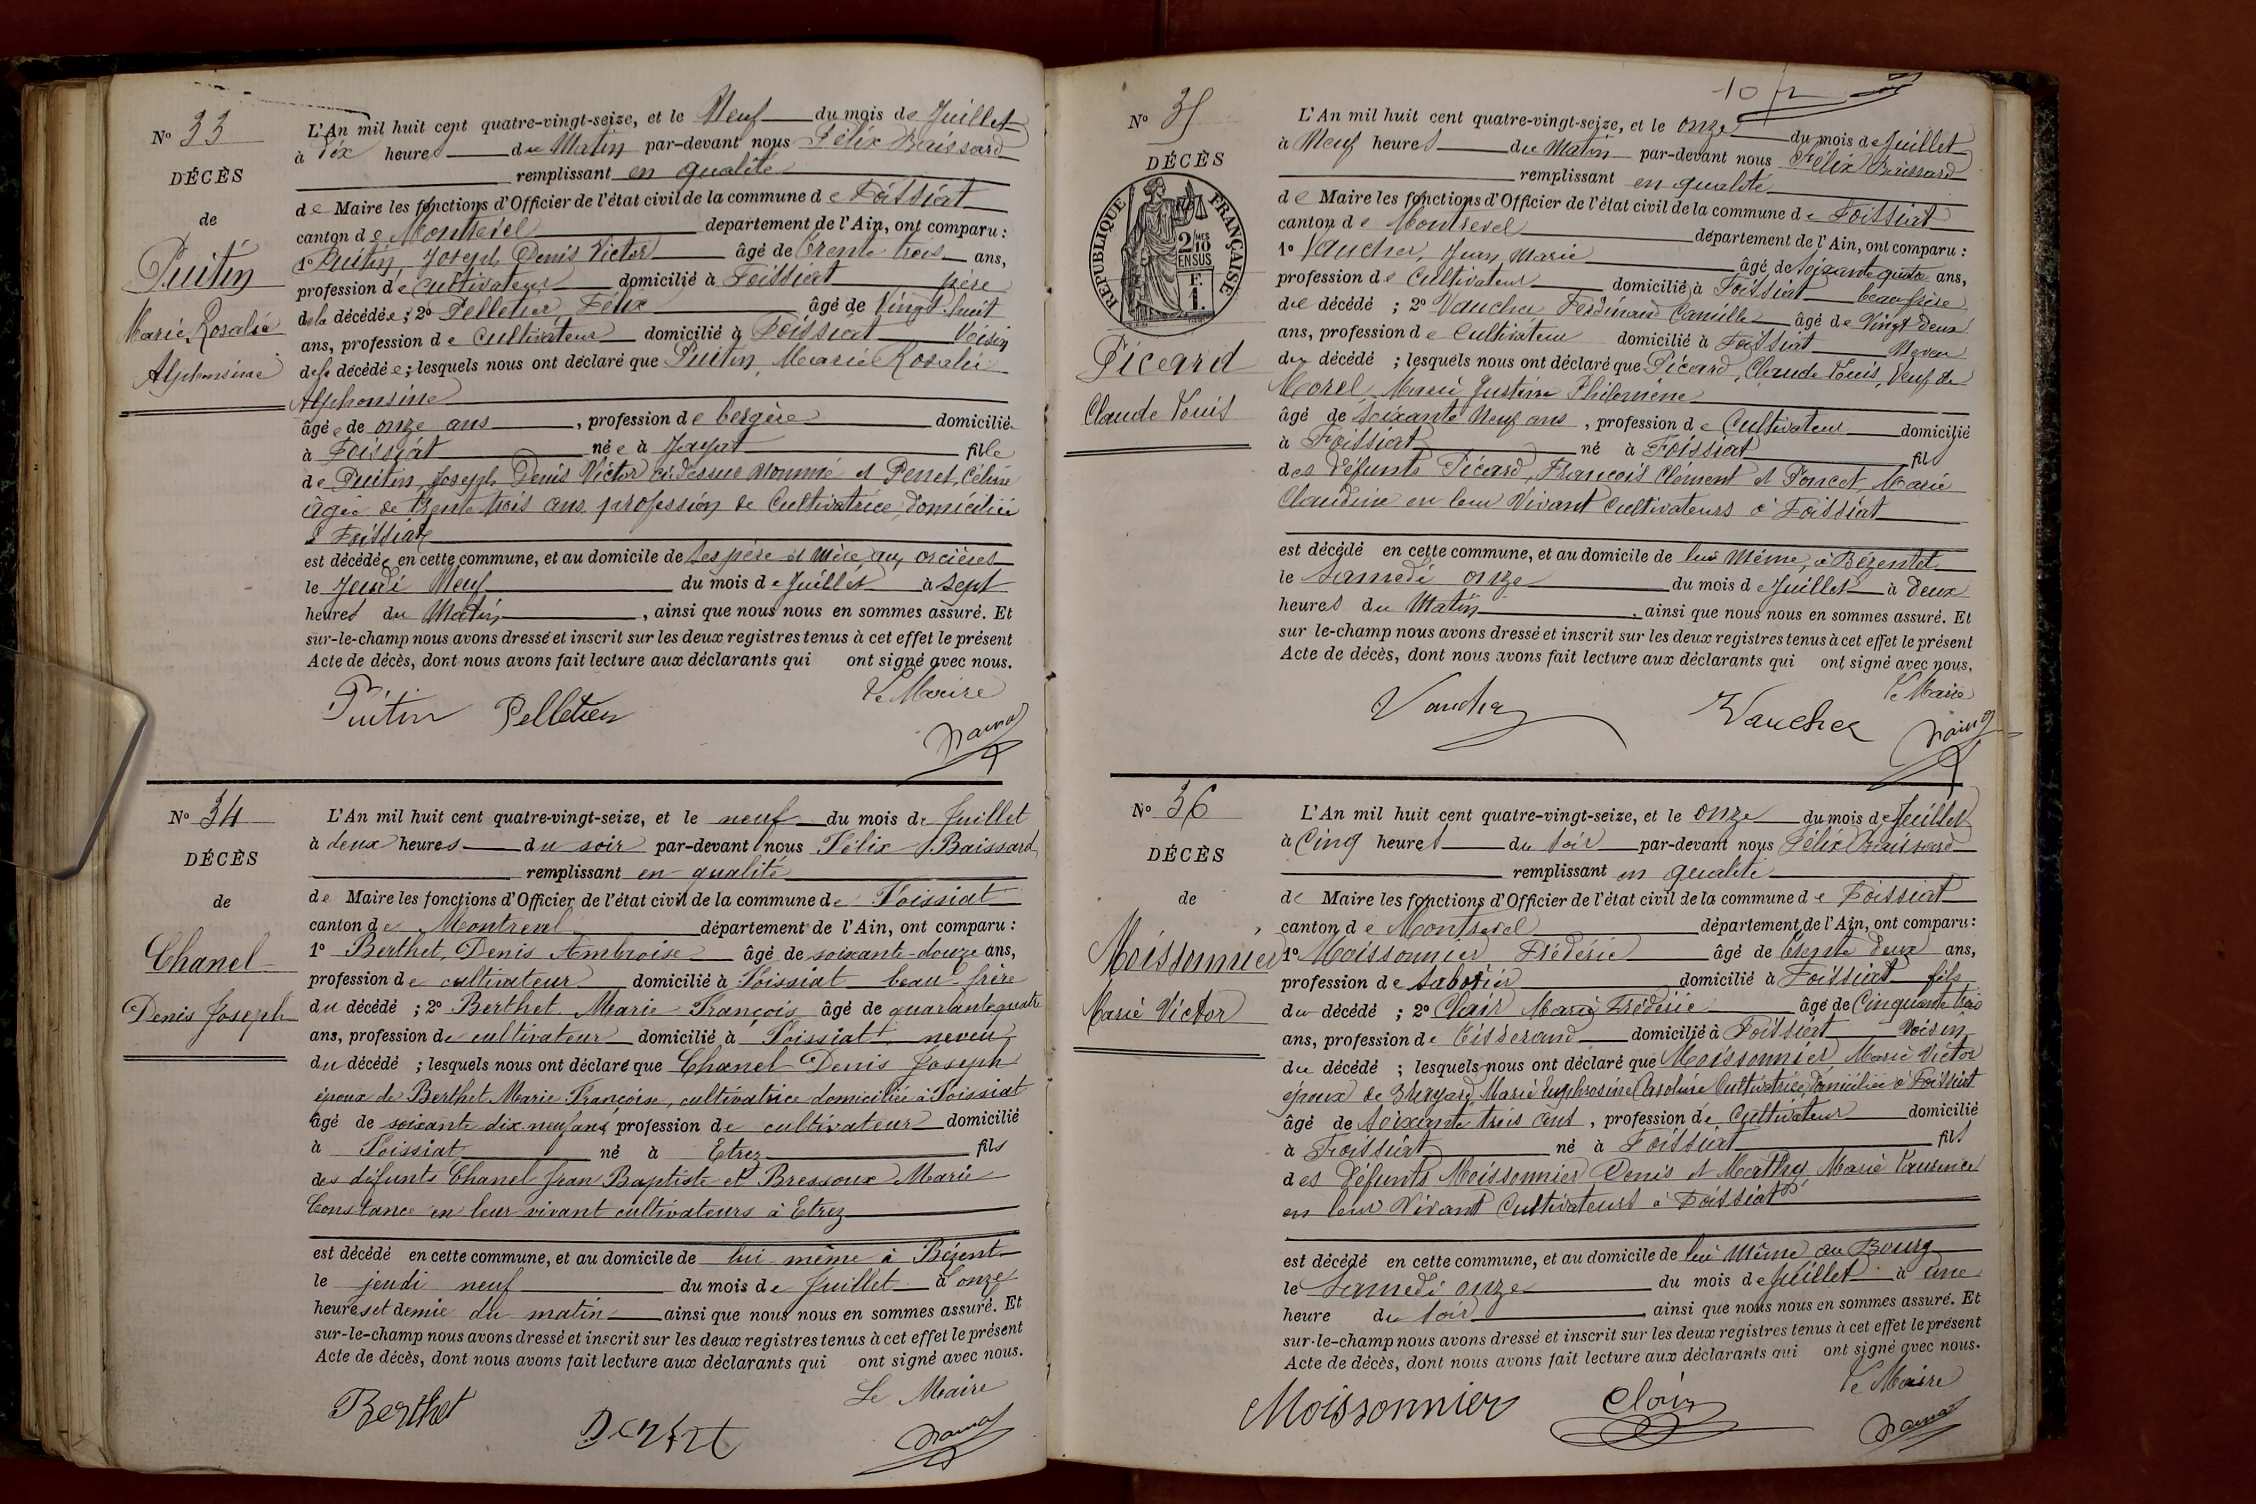 Nº 33
DÉCÈS
de
Puitin
Marie Rosalie
Alphonsine
L'An mil huit cent quatre-vingt-seize, et le Neuf du mois de Juillet
à Dix heures du Matin par-devant nous Félix Baissard
remplissant en qualité
de Maire les fonctions d'Officier de l'état civil de la commune de Foissiat
canton de Montrevel département de l'Ain, ont comparu :
1º Puitin, Joseph Denis Victor âgé de Trente trois ans,
profession de Cultivateur domicilié à Foissiat père
de la décédée ; 2º Pelletier Félix âgé de Vingt huit
ans, profession de Cultivateur domicilié à Foissiat Voisin
de la décédée ; lesquels nous ont déclaré que Puitin, Marie Rosalie
Alphonsine
âgée de onze ans, profession de bergère domicilié
à Foissiat née à Jayat fille
de Puitin, Joseph Denis Victor ci-dessus nommé et Penet, Céline
âgée de trente trois ans profession de Cultivatrice, domiciliée
à Foissiat
est décédée en cette commune, et au domicile de ses père et mère aux orcières
le Jeudi Neuf du mois de Juillet à sept
heures du Matin, ainsi que nous nous en sommes assuré. Et
sur-le-champ nous avons dressé et inscrit sur les deux registres tenus à cet effet le présent
Acte de décès, dont nous avons fait lecture aux déclarants qui ont signé avec nous.
Le Maire
Puitin Pelletier
Nº 34
DÉCÈS
de
Chanel
Denis Joseph
L'An mil huit cent quatre-vingt-seize, et le neuf du mois de Juillet
à deux heures du soir par-devant nous Félix Baissard
remplissant en qualité
de Maire les fonctions d'Officier de l'état civil de la commune de Foissiat
canton de Montrevel département de l'Ain, ont comparu :
1º Berthet, Denis Ambroise âgé de soixante-douze ans,
profession de cultivateur domicilié à Foissiat beau-frère
du décédé ; 2º Berthet Marie François âgé de quarante quatre
ans, profession de cultivateur domicilié à Foissiat neveu
du décédé ; lesquels nous ont déclaré que Chanel Denis Joseph
époux de Berthet Marie Françoise, cultivatrice domiciliée à Foissiat
âgé de soixante dix-neuf ans, profession de cultivateur domicilié
à Foissiat né à Etrez fils
des défunts Chanel Jean Baptiste et Bressoux Marie
Constance en leur vivant cultivateurs à Etrez
est décédé en cette commune, et au domicile de lui même à Bézent
le jeudi neuf du mois de Juillet à onze
heures et demie du matin ainsi que nous nous en sommes assuré. Et
sur-le-champ nous avons dressé et inscrit sur les deux registres tenus à cet effet le présent
Acte de décès, dont nous avons fait lecture aux déclarants qui ont signé avec nous.
Le Maire
Berthet
Nº 35
DÉCÈS
RÉPUBLIQUE FRANÇAISE
2/10
EN SUS
F.
1.
Picard
Claude Louis
L'An mil huit cent quatre-vingt-seize, et le onze du mois de Juillet
à Neuf heures du Matin par-devant nous Félix Baissard
remplissant en qualité
de Maire les fonctions d'Officier de l'état civil de la commune de Foissiat
canton de Montrevel département de l'Ain, ont comparu :
1º Vaucher, Jean Marie âgé de soixante quatre ans,
profession de Cultivateur domicilié à Foissiat beau frère
du décédé ; 2º Vaucher Ferdinand Camille âgé de Vingt Deux
ans, profession de Cultivateur domicilié à Foissiat Neveu
du décédé ; lesquels nous ont déclaré que Picard, Claude Louis, Veuf de
Morel, Marie Justine Philomène
âgé de soixante Neuf ans, profession de Cultivateur domicilié
à Foissiat né à Foissiat fils
des Défunts Picard, François Clément et Poncet, Marie
Claudine en leur Vivant Cultivateurs à Foissiat
est décédé en cette commune, et au domicile de lui Même, à Bézentet
le Samedi onze du mois de Juillet à Deux
heures du Matin, ainsi que nous nous en sommes assuré. Et
sur le-champ nous avons dressé et inscrit sur les deux registres tenus à cet effet le présent
Acte de décès, dont nous avons fait lecture aux déclarants qui ont signé avec nous.
Le Maire
Vaucher Vaucher
Nº 36
DÉCÈS
de
Moissonnier
Marie Victor
L'An mil huit cent quatre-vingt-seize, et le onze du mois de Juillet
à Cinq heures du soir par-devant nous Félix Baissard
remplissant en qualité
de Maire les fonctions d'Officier de l'état civil de la commune de Foissiat
canton de Montrevel département de l'Ain, ont comparu :
1º Moissonnier Frédéric âgé de Trente Deux ans,
profession de Sabotier domicilié à Foissiat fils
du décédé ; 2º Clair Marie Frédéric âgé de Cinquante trois
ans, profession de Tisserand domicilié à Foissiat Voisin
du décédé ; lesquels nous ont déclaré que Moissonnier Marie Victor
époux de Marie Euphrosine Caroline Cultivatrice, domiciliée à Foissiat
âgé de soixante trois ans, profession de Cultivateur domicilié
à Foissiat né à Foissiat fils
des Défunts Moissonnier Denis et Mathy Marie Laurence
en leur Vivant Cultivateurs à Foissiat
est décédé en cette commune, et au domicile de lui Même au Bourg
le Samedi onze du mois de Juillet à une
heure du soir, ainsi que nous nous en sommes assuré. Et
sur-le-champ nous avons dressé et inscrit sur les deux registres tenus à cet effet le présent
Acte de décès, dont nous avons fait lecture aux déclarants qui ont signé avec nous.
Le Maire
Moissonnier Clair